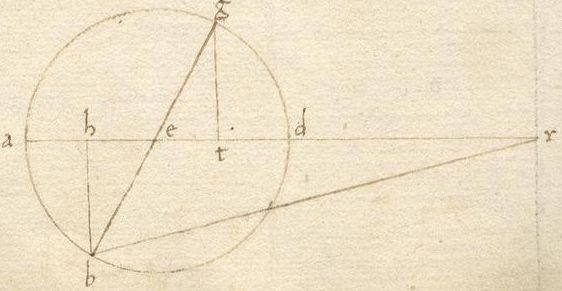 g
a h e t d r
b